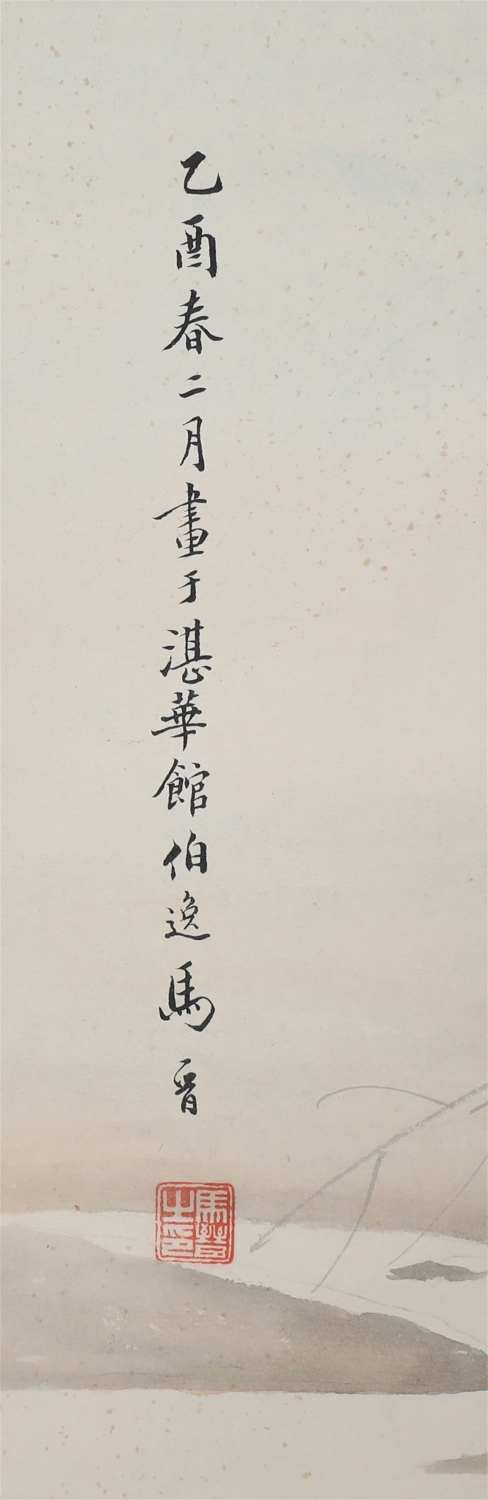 乙酉春二月畫于湛華館伯逸馬晉
馬晉之印